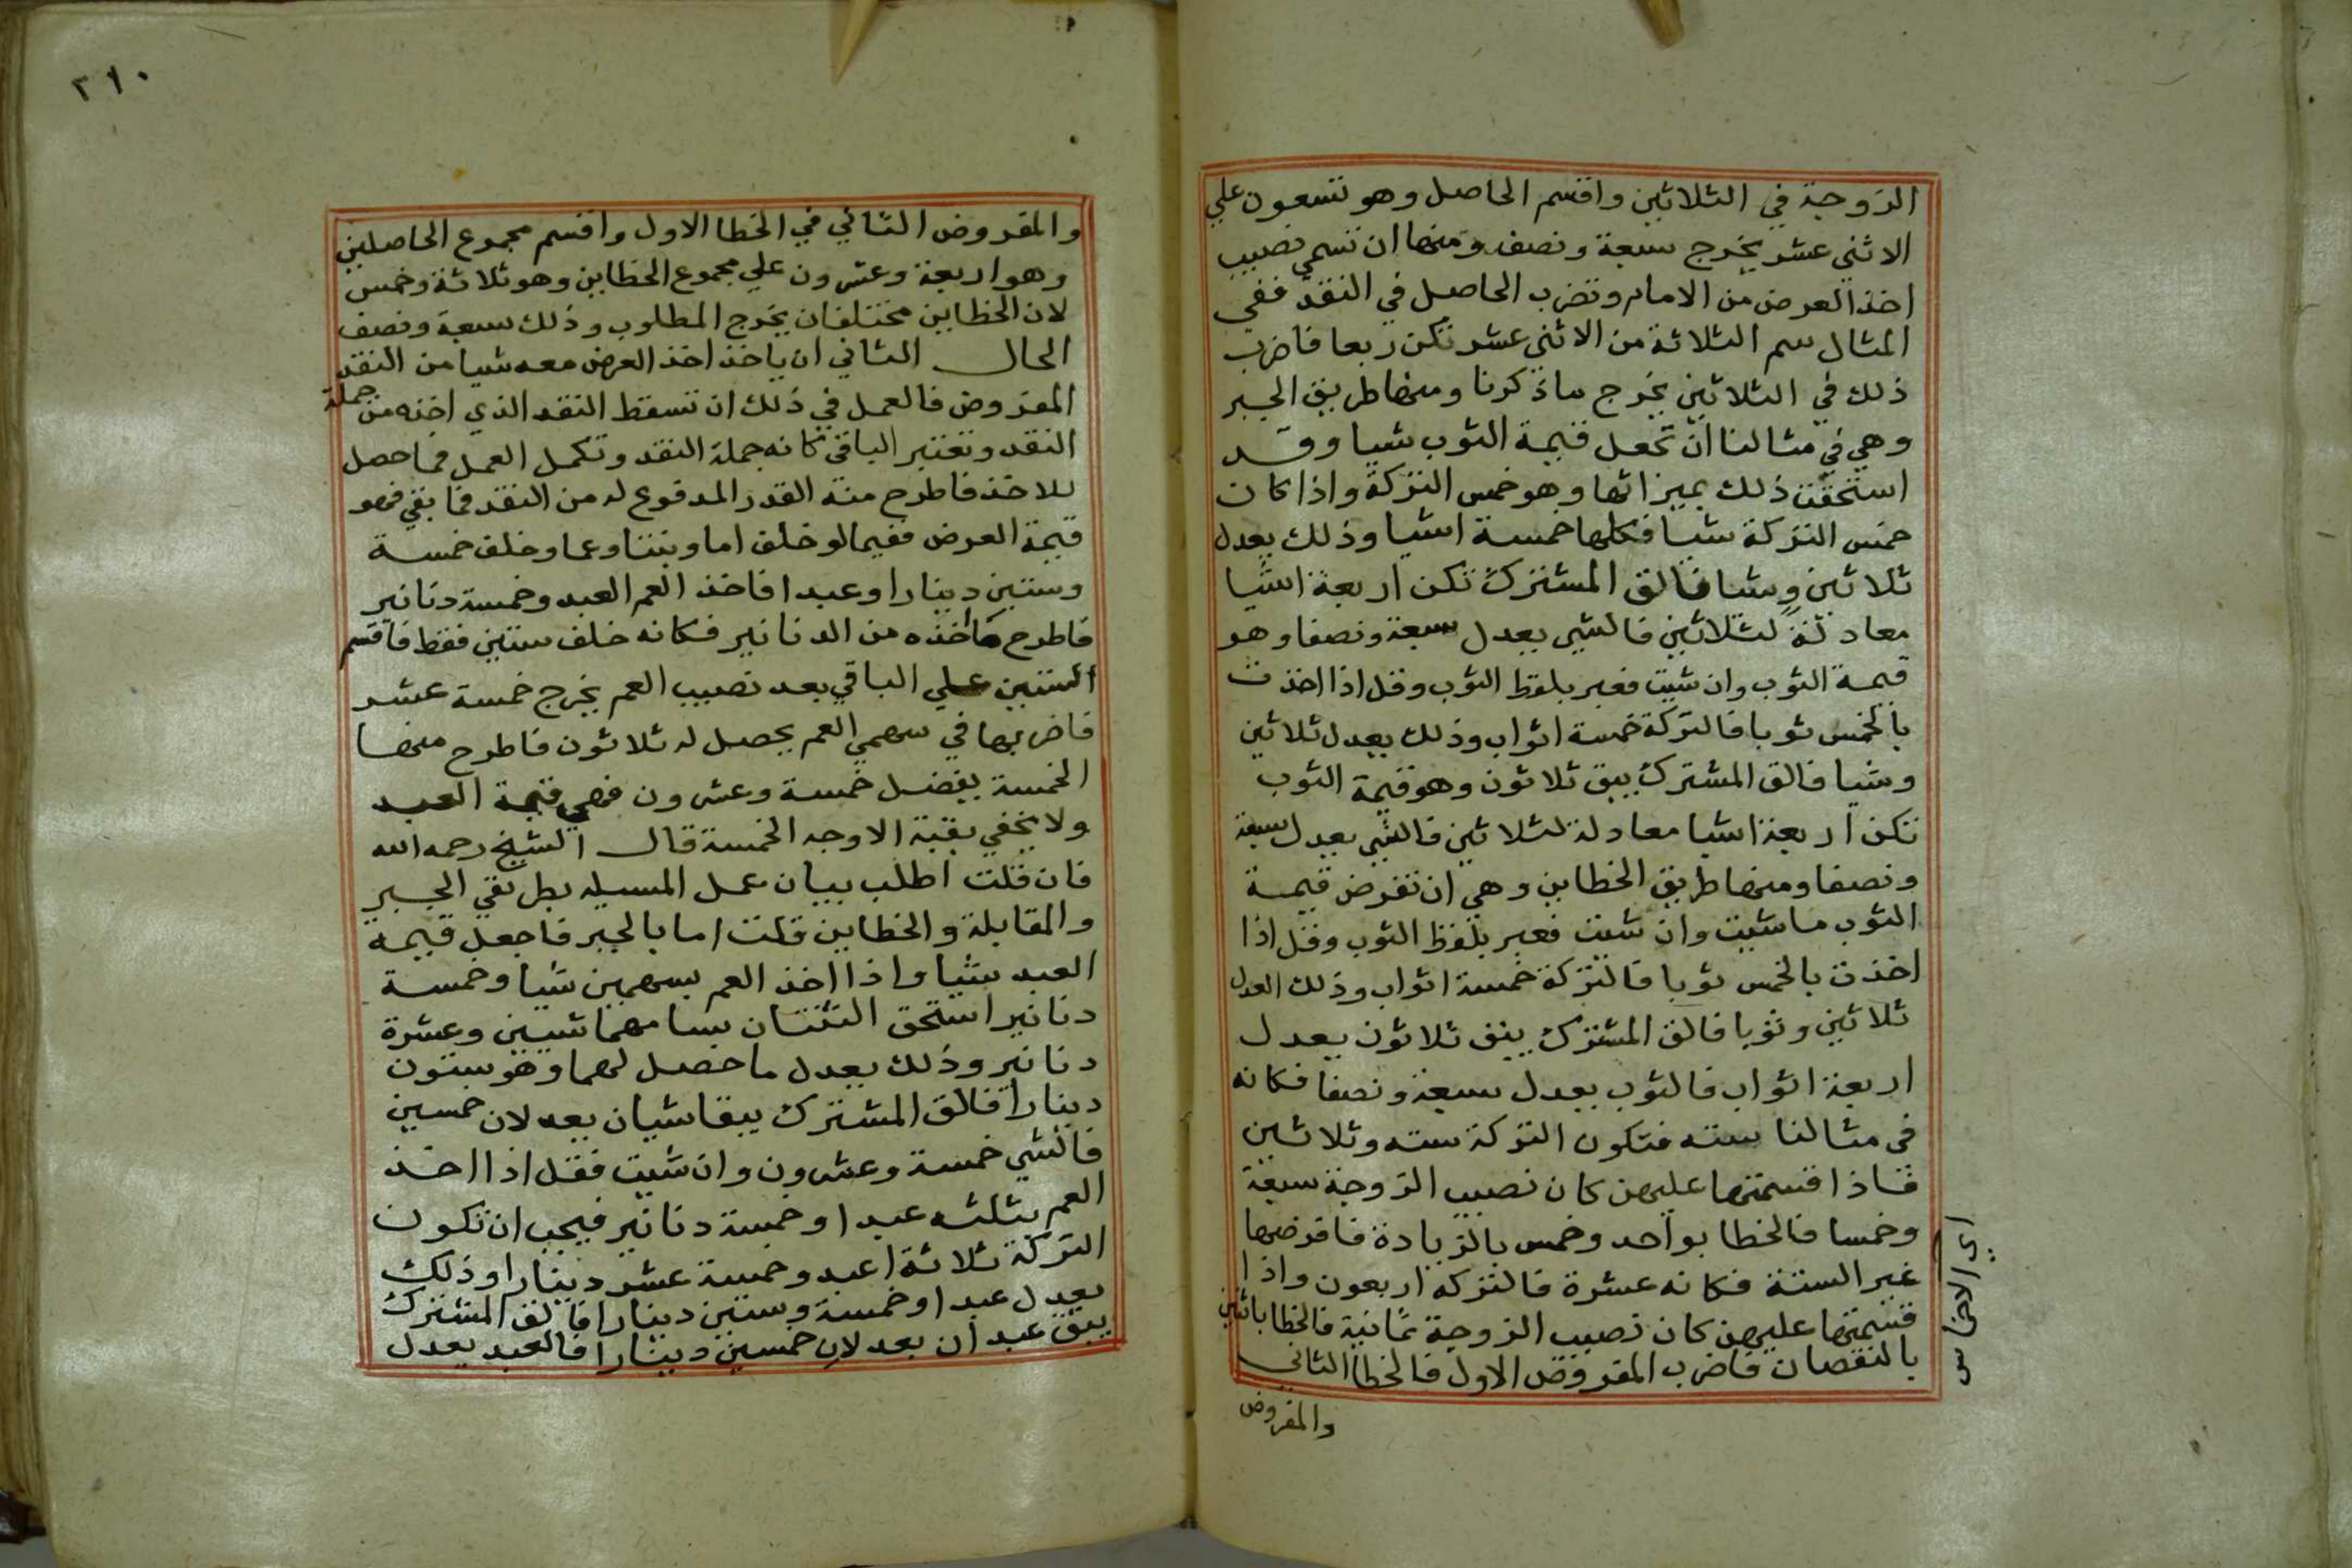 الزوجة في الثلاثين واقسم الحاصل وهو تسعون علي
الاثني عشر يخرج سبعة ونصف ومنها ان تسمي نصيب
اخذ العرض من الامام وتضرب الحاصل في النقد ففي
المثال سم الثلاثة من الاثني عشر تكن ربعا فاضرب
ذلك في الثلاثين يخرج ماذكرنا ومنها طريق الجبر
وهي في مثالنا ان تجعل قيمة الثوب شيا وقد
استحقت ذلك بميراثها وهو خمس التركة واذا كان
خمس التركة شيا فكلها خمسة اشيا وذلك يعدل
ثلاثين وشيا فالق المشترك تكن اربعة اشيا
معادلة لثلاثين فالشي يعدل سبعة ونصفا وهو
قيمة الثوب وان شيت فعبر بلفظ الثوب وقل اذا اخذت
بالخمس ثوبا فالتركة خمسة اثواب وذلك يعدل ثلاثين
وشيا فالق المشترك يبق ثلاثون وهو قيمة الثوب
تكن اربعة اشيا معادلة لثلاثين فالشي يعدل سبعة
ونصفا ومنها طريق الخطاين وهي ان تفرض قيمة
الثوب ماشيت وان شيت فعبر بلفظ الثوب وقل اذا
اخذت بالخمس ثوبا فالتركة خمسة اثواب وذلك العدل
ثلاثين وثوبا فالق المشترك يبق ثلاثون يعدل
اربعة اثواب فالثوب يعدل سبعة ونصفا فكانه
في مثالنا سته فتكون التركة سته وثلاثين
فاذا قسمتها عليهن كان نصيب الزوجة سبعة
وخمسا فالخطا بواحد وخمس بالزيادة فافرضها
غير الستة فكانه عشرة فالتركة اربعون واذا
قسمتها عليهن كان نصيب الزوجة ثمانية فالخطا باثنين
بالنقصان فاضرب المفروض الاول فالخطا الثاني
والمفروض
٢١٠
والمفروض الثاني في الخطا الاول واقسم مجموع الحاصلين
وهو اربعة وعشرون علي مجموع الخطاين وهو ثلاثة وخمس
لان الخطاين مختلفان يخرج المطلوب وذلك سبعة ونصف
الحال الثاني ان ياخذ اخذ العرض معه شيا من النقد
المفروض فالعمل في ذلك ان تسقط النقد الذي اخذه من جملة
النقد وتعتبر الباقي كانه جملة النقد وتكمل العمل فماحصل
للاخذ فاطرح منه القدر المدفوع له من النقد فما بقي فهو
قيمة العرض ففيما لو خلف اما وبنتا وعما وخلف خمسة
وستين دينارا وعبدا فاخذ العم العبد وخمسة دنانير
فاطرح مااخذه من الدنانير فكانه خلف ستين فقط فاقسم
الستين علي الباقي بعد نصيب العم يخرج خمسة عشر
فاضربها في سهمي العم يحصل له ثلاثون فاطرح منها
الخمسة يفضل خمسة وعشرون فهي قيمة العبد
ولا يخفي بقية الاوجه الخمسة قال الشيخ رحمه الله
فان قلت اطلب بيان عمل المسيله بطريقي الجبر
والمقابلة والخطاين قلت اما بالجبر فاجعل قيمه
العبد شيا واذا اخذ العم بسهمين شيا وخمسة
دنانير استحق الثنتان بسامهما شيين وعشرة
دنانير وذلك يعدل ما حصل لهما وهو ستون
دينارا فالق المشترك يبقا شيان يعدلان خمسين
فالشي خمسة وعشرون وان شيت فقل اذا اخذ
العم بثلثه عبدا وخمسة دنانير فيجب ان تكون
التركة ثلاثة اعبد وخمسة عشر دينارا وذلك
يعدل عبدا وخمسة وستين دينارا فالق المشترك
يبق عبدان يعدلان خمسين دينارا فالعبد يعدل